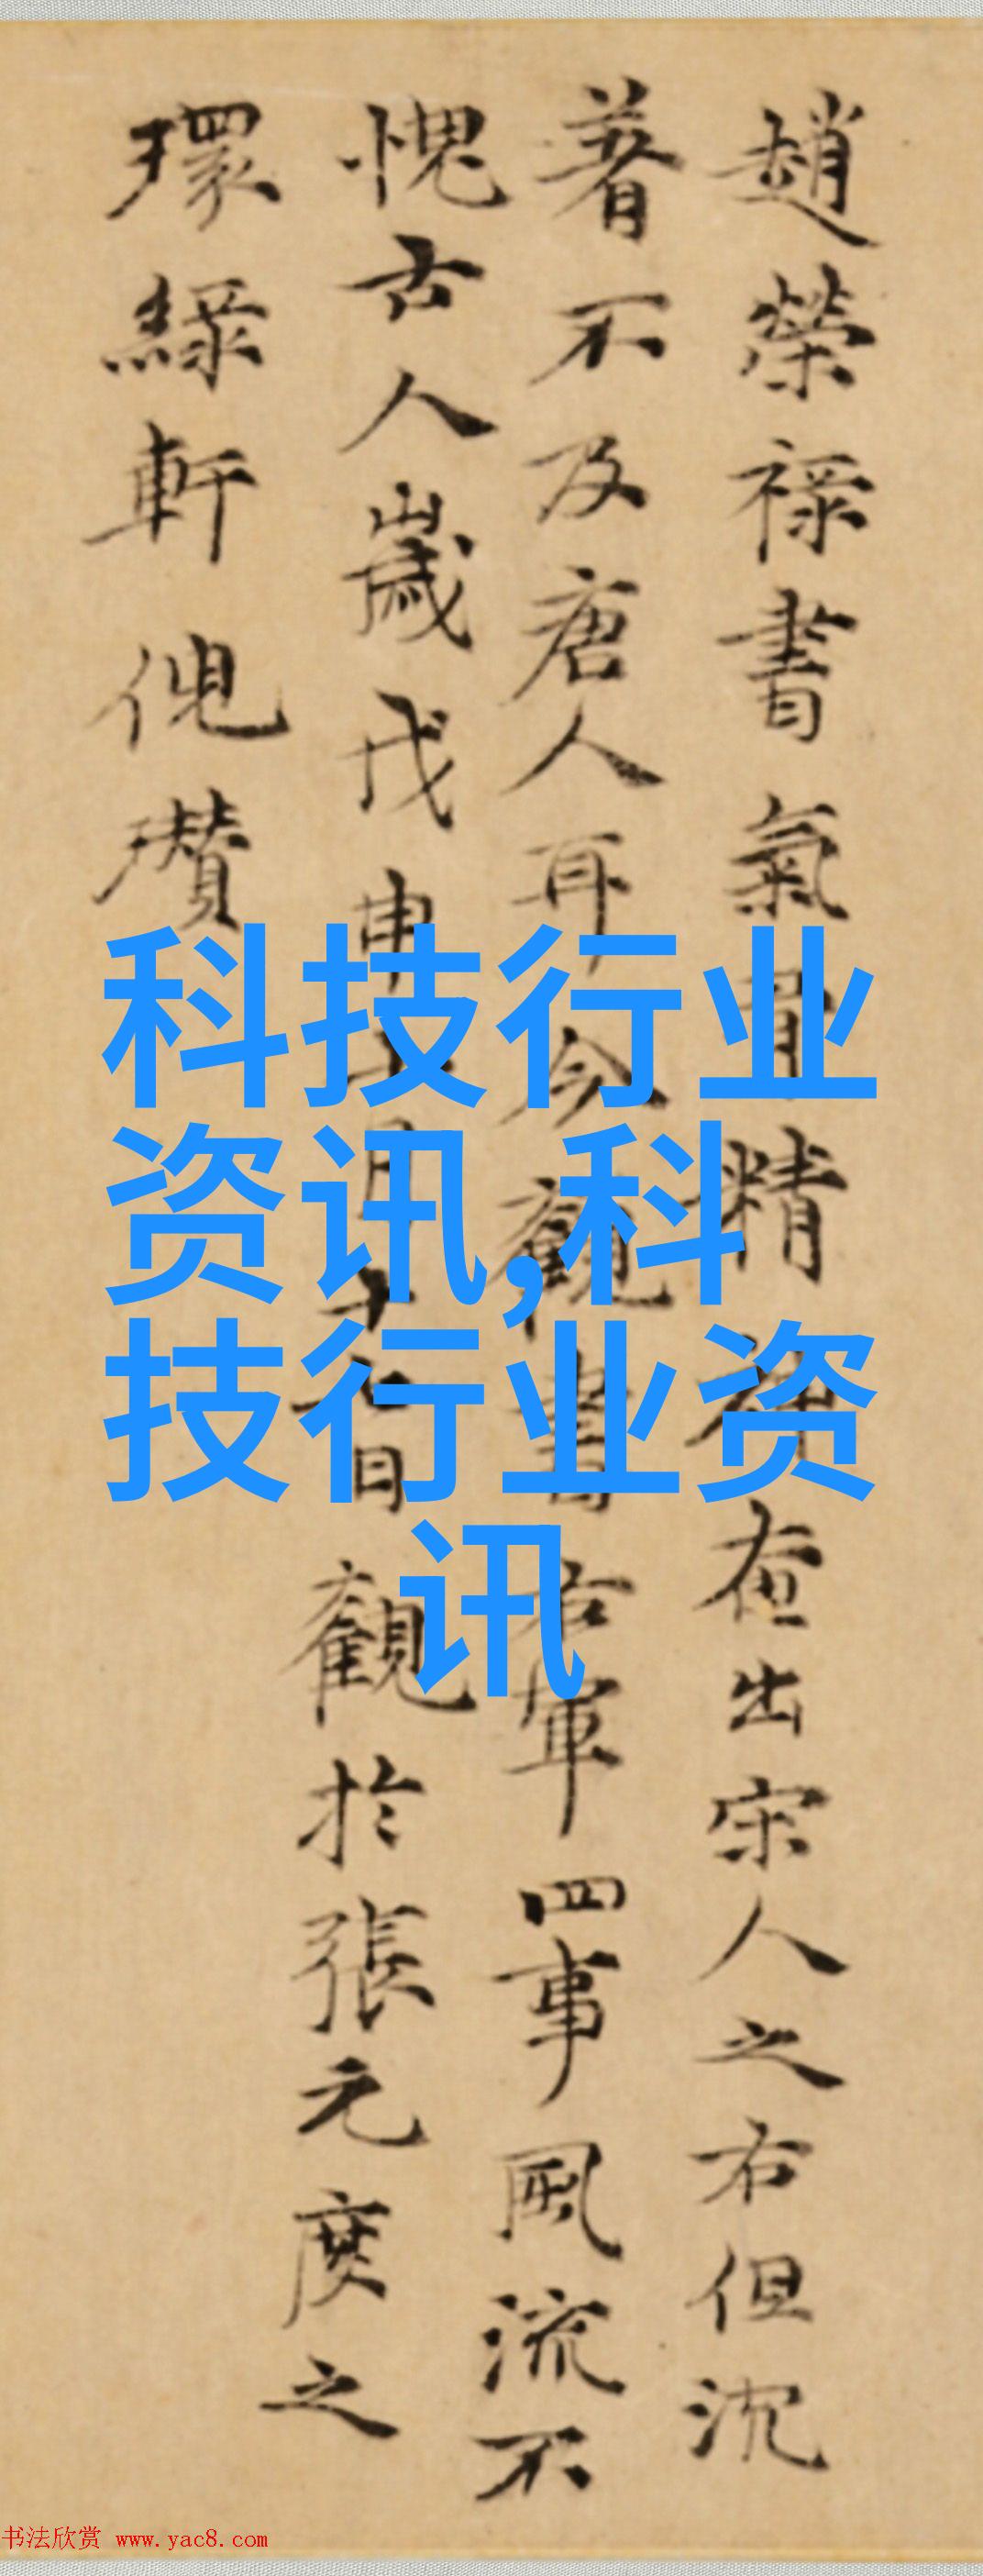 趙榮祿書氣骨精神出宋人之右但沉
著不及唐人耳今觀書右軍四事風流不
愧古人歲戊申十月十日觀於張元度之
環綠軒倪瓚
科技行业
资讯,科
技行业资
讯
书法欣赏 www.yac8.com